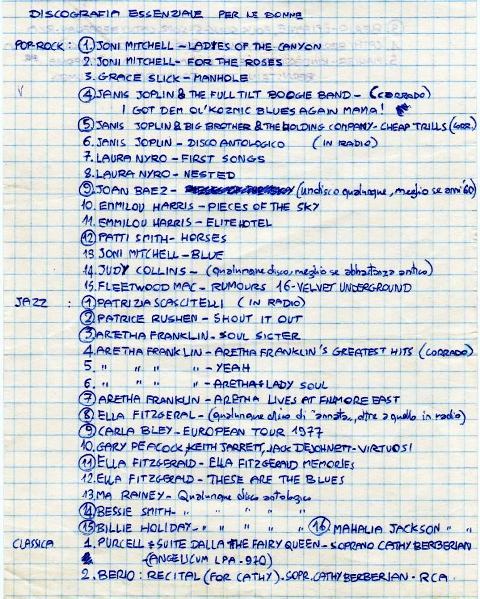 DISCOGRAFIA ESSENZIALE PER LE DONNE
POP-ROCK: 1. JONI MITCHELL - LADYES OF THE CANYON
2. JONI MITCHELL - FOR THE ROSES
3. GRACE SLICK - MANHOLE
4. JANIS JOPLIN & THE FULL TILT BOOGIE BAND - (CORRADO)
I GOT DEM OL' KOZMIC BLUES AGAIN MAMA!
5. JANIS JOPLIN & BIG BROTHER & THE HOLDING COMPANY - CHEAP TRILLS (GRR.)
6. JANIS JOPLIN - DISCO ANTOLOGICO (IN RADIO)
7. LAURA NYRO - FIRST SONGS
8. LAURA NYRO - NESTED
9. JOAN BAEZ - (un disco qualunque, meglio se anni '60)
10. EMMILOU HARRIS - PIECES OF THE SKY
11. EMMILOU HARRIS - ELITE HOTEL
12. PATTI SMITH - HORSES
13. JONI MITCHELL - BLUE
14. JUDY COLLINS - (qualunque disco, meglio se abbastanza antico)
15. FLEETWOOD MAC - RUMOURS 16 - VELVET UNDERGROUND
JAZZ : 1. PATRIZIA SCASCITELLI (IN RADIO)
2. PATRICE RUSHEN - SHOUT IT OUT
3. ARETHA FRANKLIN - SOUL SISTER
4. ARETHA FRANKLIN - ARETHA FRANKLIN'S GREATEST HITS (CORRADO)
5. " " " " - YEAH
6. " " " " - ARETHA: LADY SOUL
7. ARETHA FRANKLIN - ARETHA LIVES AT FILMORE EAST
8. ELLA FITZGERAL - (qualunque disco di annata, oltre a quello in radio)
9. CARLA BLEY - EUROPEAN TOUR 1977
10. GARY PEACOCK, KEITH JARRETT, JACK DEJOHNETT - VIRTUOSI
11. ELLA FITZGERALD - ELLA FITZGERALD MEMORIES
12. ELLA FITZGERALD - THESE ARE THE BLUES
13. MA RAINEY - Qualunque disco antologico
14. BESSIE SMITH - " " " "
15. BILLIE HOLIDAY - " " " " 16. MAHALIA JACKSON " "
CLASSICA 1. PURCELL: SUITE DALLA THE FAIRY QUEEN - SOPRANO CATHY BERBERIAN
(ANGELICUM LPA - 970)
2. BERIO: RECITAL (FOR CATHY). SOPR. CATHY BERBERIAN - RCA